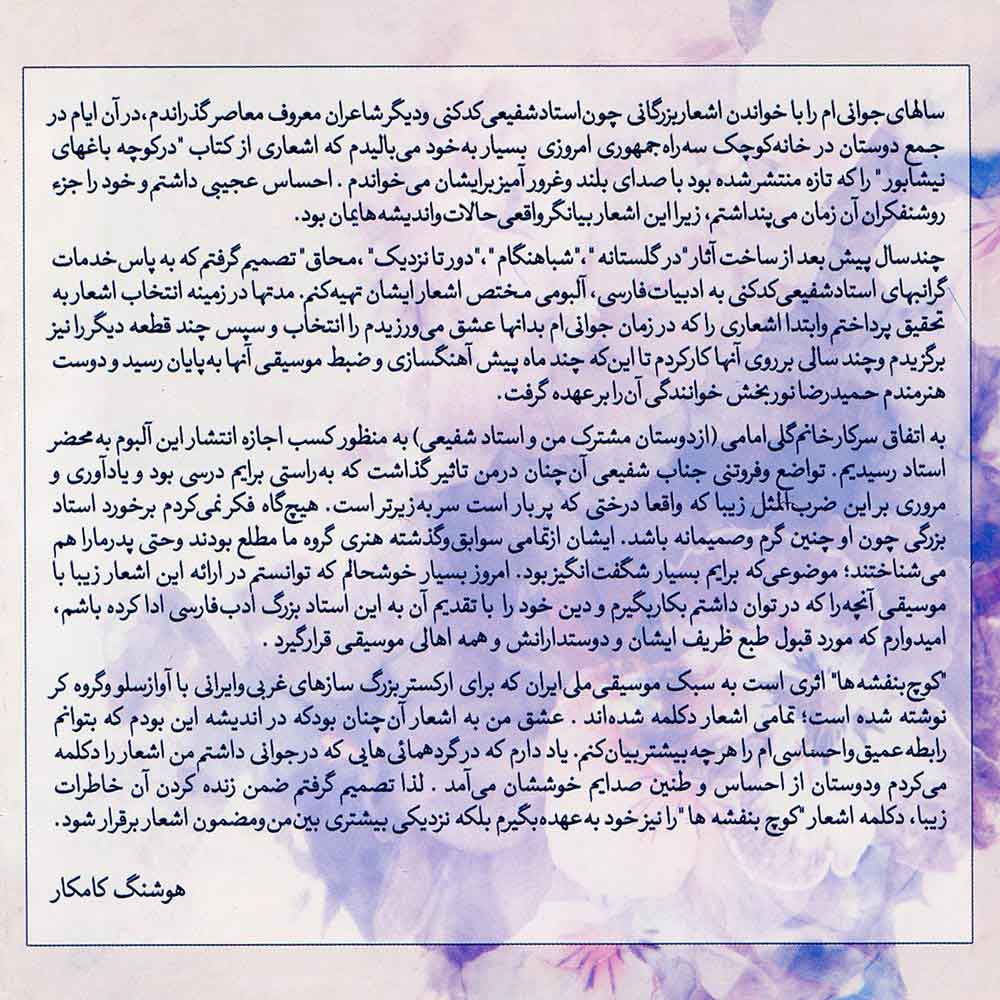 سالهای جوانی‌ام را با خواندن اشعار بزرگانی چون استاد شفیعی کدکنی و دیگر شاعران معروف معاصر گذراندم، در آن ایام در
جمع دوستان در خانه کوچک سه‌راه جمهوری امروزی بسیار به خود می‌بالیدم که اشعاری از کتاب "در کوچه باغهای
نیشابور" را که تازه منتشر شده بود با صدای بلند و غرور آمیز برایشان می‌خواندم . احساس عجیبی داشتم و خود را جزء
روشنفکران آن زمان می‌پنداشتم، زیرا این اشعار بیانگر واقعی حالات و اندیشه هایمان بود.
چند سال پیش بعد از ساخت آثار "در گلستانه "،"شباهنگام"،"دور تا نزدیک" ،محاق" تصمیم گرفتم که به پاس خدمات
گرانبهای استاد شفیعی کدکنی به ادبیات فارسی، آلبومی مختص اشعار ایشان تهیه کنم. مدتها در زمینه انتخاب اشعار به
تحقیق پرداختم و ابتدا اشعاری را که در زمان جوانی‌ام بدانها عشق می‌ورزیدم را انتخاب و سپس چند قطعه دیگر را نیز
برگزیدم و چند سالی بر روی آنها کار کردم تا این‌که چند ماه پیش آهنگسازی و ضبط موسیقی آنها به پایان رسید و دوست
هنرمندم حمیدرضا نوربخش خوانندگی آن را بر عهده گرفت.
به اتفاق سرکار خانم گلی امامی (از دوستان مشترک من و استاد شفیعی) به منظور کسب اجازه انتشار این آلبوم به محضر
استاد رسیدیم. تواضع و فروتنی جناب شفیعی آن‌چنان در من تاثیر گذاشت که به‌راستی برایم درسی بود و یادآوری و
مروری بر این ضرب‌المثل زیبا که واقعا درختی که پر بار است سر به زیرتر است. هیچ‌گاه فکر نمی‌کردم برخورد استاد
بزرگی چون او چنین گرم و صمیمانه باشد. ایشان از تمامی سوابق و گذشته هنری گروه ما مطلع بودند و حتی پدر ما را هم
می‌شناختند؛ موضوعی که برایم بسیار شگفت‌انگیز بود. امروز بسیار خوشحالم که توانستم در ارائه این اشعار زیبا با
موسیقی آنچه را که در توان داشتم بکار بگیرم و دین خود را با تقدیم آن به این استاد بزرگ ادب فارسی ادا کرده باشم،
امیدوارم که مورد قبول طبع ظریف ایشان و دوستدارانش و همه اهالی موسیقی قرار گیرد .
"کوچ بنفشه ها" اثری است به سبک موسیقی ملی ایران که برای ارکستر بزرگ سازهای غربی و ایرانی با آواز سلو و گروه کر
نوشته شده است؛ تمامی اشعار دکلمه شده‌اند . عشق من به اشعار آن‌چنان بود که در اندیشه این بودم که بتوانم
رابطه عمیق و احساسی‌ام را هر چه بیشتر بیان کنم. یاد دارم که در گردهمائی هایی که در جوانی داشتم من اشعار را دکلمه
می‌کردم و دوستان از احساس و طنین صدایم خوششان می‌آمد . لذا تصمیم گرفتم ضمن زنده کردن آن خاطرات
زیبا، دکلمه اشعار "کوچ بنفشه ها "را نیز خود به عهده بگیرم بلکه نزدیکی بیشتری بین من و مضمون اشعار برقرار شود.
هوشنگ کامکار